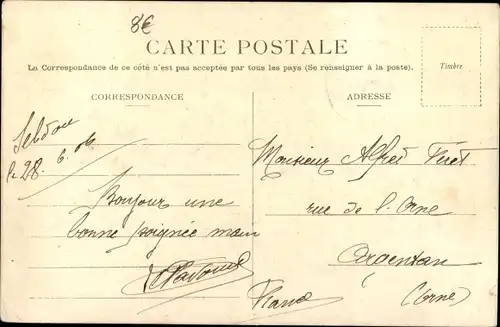 8€
CARTE POSTALE
La Correspondance de ce côté n'est pas acceptée par tous les pays (Se renseigner à la poste).
Timbre
CORRESPONDANCE
ADRESSE
Sebdou
le 28. 6. 06
Bonjour une
bonne poignée main
Monsieur Alfred
rue de l'Orne
Argentan
(Orne)
France